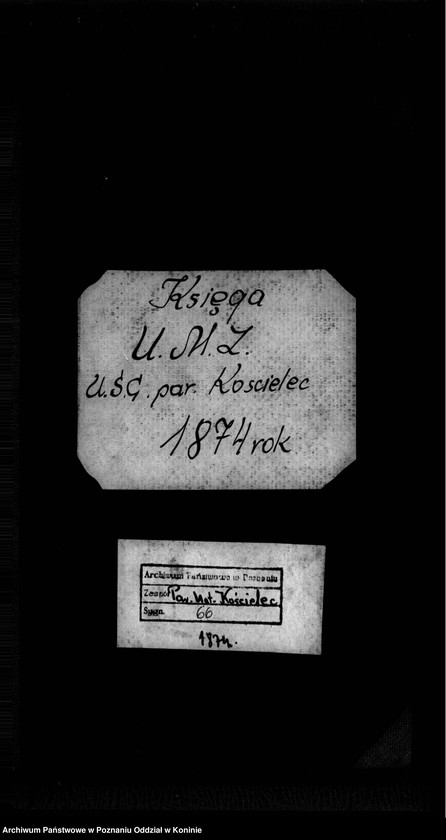 Księga
U.M.Z.
U.S.C. par. Kościelec
1874 rok
Archiwum Państwowe w Poznaniu
Zespół Par. Kat. Kościelec
Sygn. 66
1874.
Archiwum Państwowe w Poznaniu Oddział w Koninie